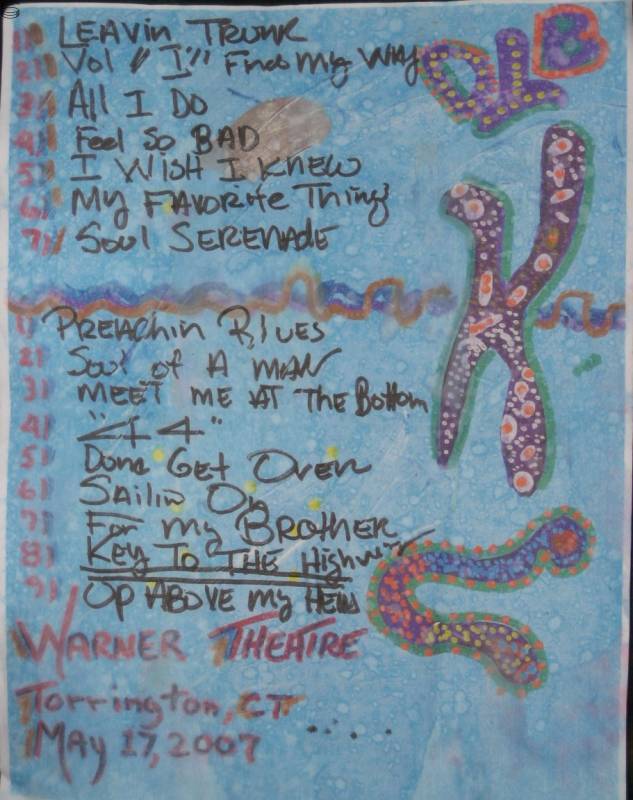 1) LEAVIN TRUNK
2) Vol "I" Find My WAY
3) All I Do
4) Feel So BAD
5) I WISH I KNEW
6) My FAVORITE Things
7) Soul SERENADE
1) PREACHIN BLUES
2) Soul of A MAN
3) MEET ME AT The Bottom
4) "<14"
5) Done Get OVER
6) SAILIN ON
7) FOR My BROTHER
8) KEY TO THE Highway
9) UP ABOVE My HEAD
WARNER THEATRE
Torrington, CT
MAY 17, 2007
DKB